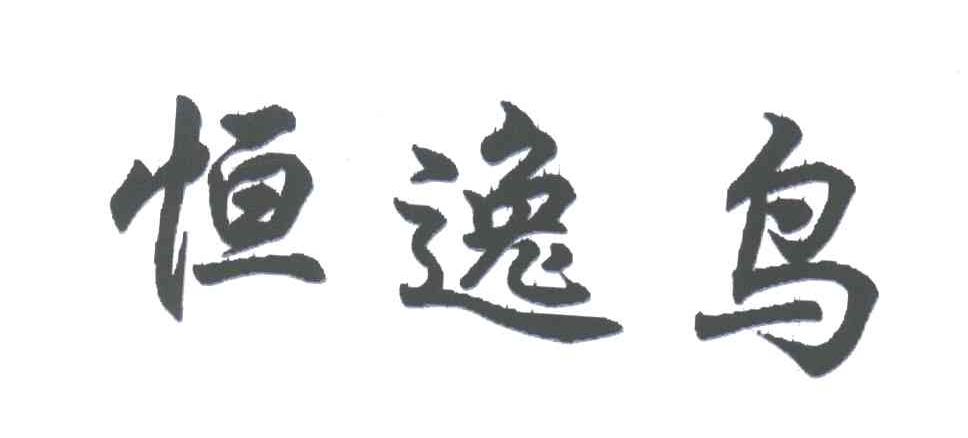 恒逸鸟